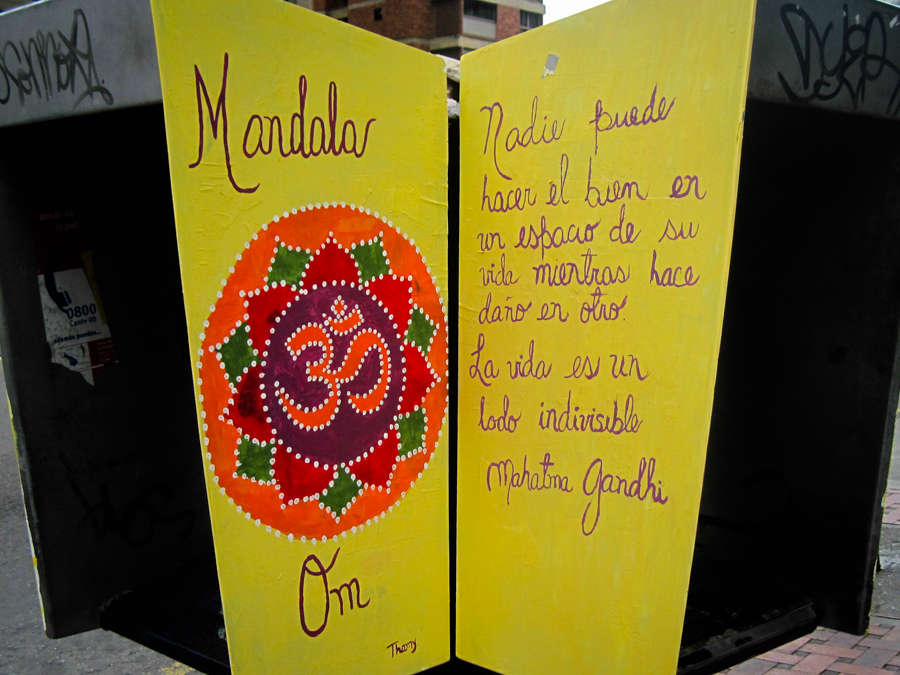 Mandala
ॐ
Om
Nadie puede
hacer el bien en
un espacio de su
vida mientras hace
daño en otro.
La vida es un
todo indivisible
Mahatma Gandhi
0800